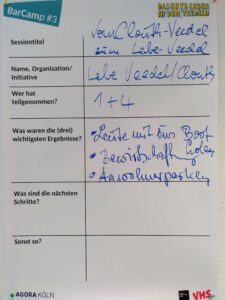 BarCamp #3
DAS GUTE LEBEN
IN DEN VEEDELN
Sessiontitel
vom Clouth-Veedel
zum Lebe-Veedel
Name, Organisation/
Initiative
Lebe Veedel/Clouth
Wer hat
teilgenommen?
1+4
Was waren die (drei)
wichtigsten Ergebnisse?
• Leute mit ins Boot
holen
• Bewirtschaftung
• Anwohnerparken
Was sind die nächsten
Schritte?
Sonst so?
AGORA KÖLN
VHS